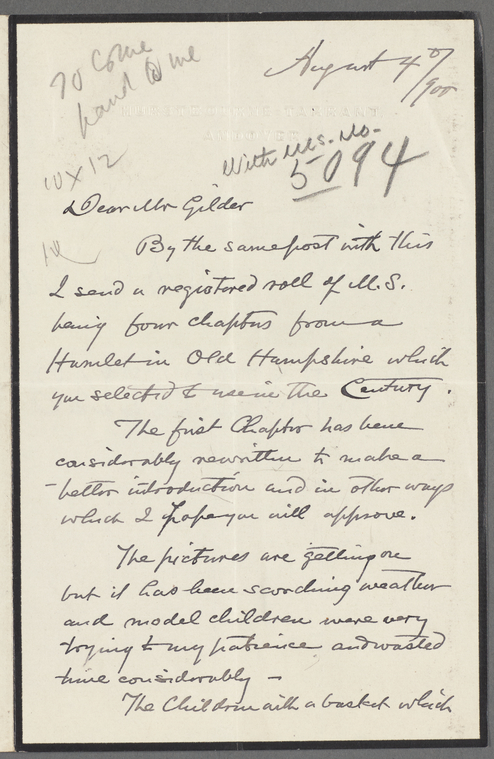 To Come
hand @ me
August 4th/900
With Ms. No.
5094
10 x 12
Dear Mr Gilder
By the same post with this
I send a registered roll of M.S.
being four chapters from a
Hamlet in Old Hampshire which
you selected to use in the Century.
The first Chapter has been
considerably rewritten to make a
better introduction and in other ways
which I hope you will approve.
The pictures are getting on
but it has been scorching weather
and model children were very
trying to my patience and wasted
time considerably –
The Children with a basket which